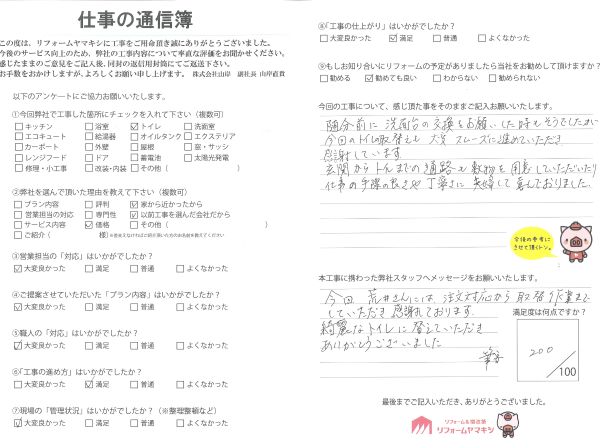 仕事の通信簿
この度は、リフォームヤマキシに工事をご用命頂き誠にありがとうございました。
今後のサービス向上のため、弊社の工事内容について率直な評価をお聞かせください。
感じたままのご意見をご記入後、同封の返信用封筒にてご返送下さい。
お手数をおかけしますが、よろしくお願い申し上げます。 株式会社山岸 副社長 山岸直貴
以下のアンケートにご協力お願いいたします。
①今回弊社で工事した箇所にチェックを入れて下さい（複数可）
□キッチン □浴室 ☑トイレ □洗面室
□エコキュート □給湯器 □オイルタンク □エクステリア
□カーポート □外壁 □屋根 □窓・サッシ
□レンジフード □ドア □蓄電池 □太陽光発電
□修理・小工事 □改装・内装 □その他（ ）
②弊社を選んで頂いた理由を教えて下さい（複数可）
□プラン内容 □評判 ☑家から近かったから
□営業担当の対応 □専門性 ☑以前工事を選んだ会社だから
□サービス内容 ☑価格 □その他（ ）
□ご紹介（ 様）※差支えなければご紹介頂いた方のお名前を教えてください
③営業担当の「対応」はいかがでしたか？
☑大変良かった □満足 □普通 □よくなかった
④ご提案させていただいた「プラン内容」はいかがでしたか？
☑大変良かった □満足 □普通 □よくなかった
⑤職人の「対応」はいかがでしたか？
☑大変良かった □満足 □普通 □よくなかった
⑥「工事の進め方」はいかがでしたか？
□大変良かった ☑満足 □普通 □よくなかった
⑦現場の「管理状況」はいかがでしたか？（※整理整頓など）
☑大変良かった □満足 □普通 □よくなかった
⑧「工事の仕上がり」はいかがでしたか？
□大変良かった ☑満足 □普通 □よくなかった
⑨もしお知り合いにリフォームの予定がありましたら当社をお勧めして頂けますか？
□勧める ☑勧めても良い □わからない □勧められない
今回の工事について、感じた事柄をそのままご記入お願いいたします。
随分前に洗面台の交換をお願いした時もそうでしたが
今回のトイレの取替えも大変スムーズに進めていただき
感謝しています。
玄関からトイレまでの通路も敷物を用意していただいたり
仕事の手際の良さや丁寧さに夫婦して喜んでおりました。
今後の参考に
させて頂くトン。
本工事に携わった弊社スタッフへメッセージをお願いいたします。
今回 荒井さんには、注文対応から取替え作業まで
していただき感謝しております
綺麗なトイレに替えていただき
ありがとうございました
満足度は何点ですか？
200
/100
最後までご記入いただき、ありがとうございました。
リフォーム&増改築
リフォームヤマキシ